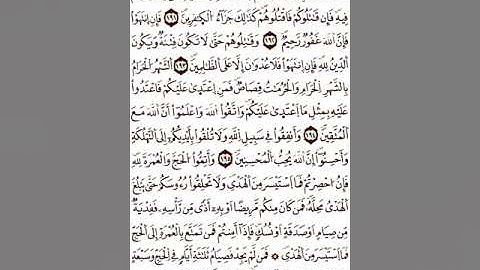 فِيهِ فَإِن قَٰتَلُوكُمْ فَاقْتُلُوهُمْ كَذَٰلِكَ جَزَآءُ الْكَٰفِرِينَ ١٩١ فَإِنِ انتَهَوْا
فَإِنَّ اللَّهَ غَفُورٌ رَّحِيمٌ ١٩٢ وَقَٰتِلُوهُمْ حَتَّىٰ لَا تَكُونَ فِتْنَةٌ وَيَكُونَ
الدِّينُ لِلَّهِ فَإِنِ انتَهَوْا فَلَا عُدْوَٰنَ إِلَّا عَلَى الظَّٰلِمِينَ ١٩٣ الشَّهْرُ الْحَرَامُ
بِالشَّهْرِ الْحَرَامِ وَالْحُرُمَٰتُ قِصَاصٌ فَمَنِ اعْتَدَىٰ عَلَيْكُمْ فَاعْتَدُوا
عَلَيْهِ بِمِثْلِ مَا اعْتَدَىٰ عَلَيْكُمْ وَاتَّقُوا اللَّهَ وَاعْلَمُوٓا أَنَّ اللَّهَ مَعَ
الْمُتَّقِينَ ١٩٤ وَأَنفِقُوا فِي سَبِيلِ اللَّهِ وَلَا تُلْقُوا بِأَيْدِيكُمْ إِلَى التَّهْلُكَةِ
وَأَحْسِنُوٓا إِنَّ اللَّهَ يُحِبُّ الْمُحْسِنِينَ ١٩٥ وَأَتِمُّوا الْحَجَّ وَالْعُمْرَةَ لِلَّهِ
فَإِنْ أُحْصِرْتُمْ فَمَا اسْتَيْسَرَ مِنَ الْهَدْيِ وَلَا تَحْلِقُوا رُءُوسَكُمْ حَتَّىٰ يَبْلُغَ
الْهَدْيُ مَحِلَّهُ فَمَن كَانَ مِنكُم مَّرِيضًا أَوْ بِهِ أَذًى مِّن رَّأْسِهِ فَفِدْيَةٌ
مِّن صِيَامٍ أَوْ صَدَقَةٍ أَوْ نُسُكٍ فَإِذَا أَمِنتُمْ فَمَن تَمَتَّعَ بِالْعُمْرَةِ إِلَى الْحَجِّ
فَمَا اسْتَيْسَرَ مِنَ الْهَدْيِ ۞ فَمَن لَّمْ يَجِدْ فَصِيَامُ ثَلَٰثَةِ أَيَّامٍ فِي الْحَجِّ وَسَبْعَةٍ